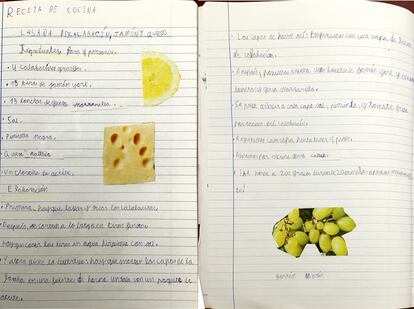 RECETA DE COCINA
LASAÑA DE CALABACÍN, JAMÓN Y QUESO
Ingredientes para 4 personas.
• 4 Calabacines grandes.
• 13 tiras de jamón york.
• 13 lonchas de queso mozzarella.
• Sal.
• Pimienta negra.
• Queso rallado
• Un chorrito de aceite.
Elaboración:
• Primero, hay que lavar y secar los calabacines.
• Después, se cortan a lo largo en tiras finas.
• Hay que cocer las tiras en agua hirviendo con sal.
• Y ahora viene lo divertido: hay que montar las capas de la
lasaña en una fuente de horno untada con un poquito de
aceite.
• Las capas se hacen así: Empezamos con una capa de tiras
de calabacín.
• Después, ponemos encima una loncha de jamón york y
loncha de queso mozzarella.
• Se puede añadir a cada capa sal, pimienta, y tomate frito
por encima del calabacín.
• Repetimos con capas hasta
• Ponemos por encima queso
• Al horno a 200 grados durante 20 minutos